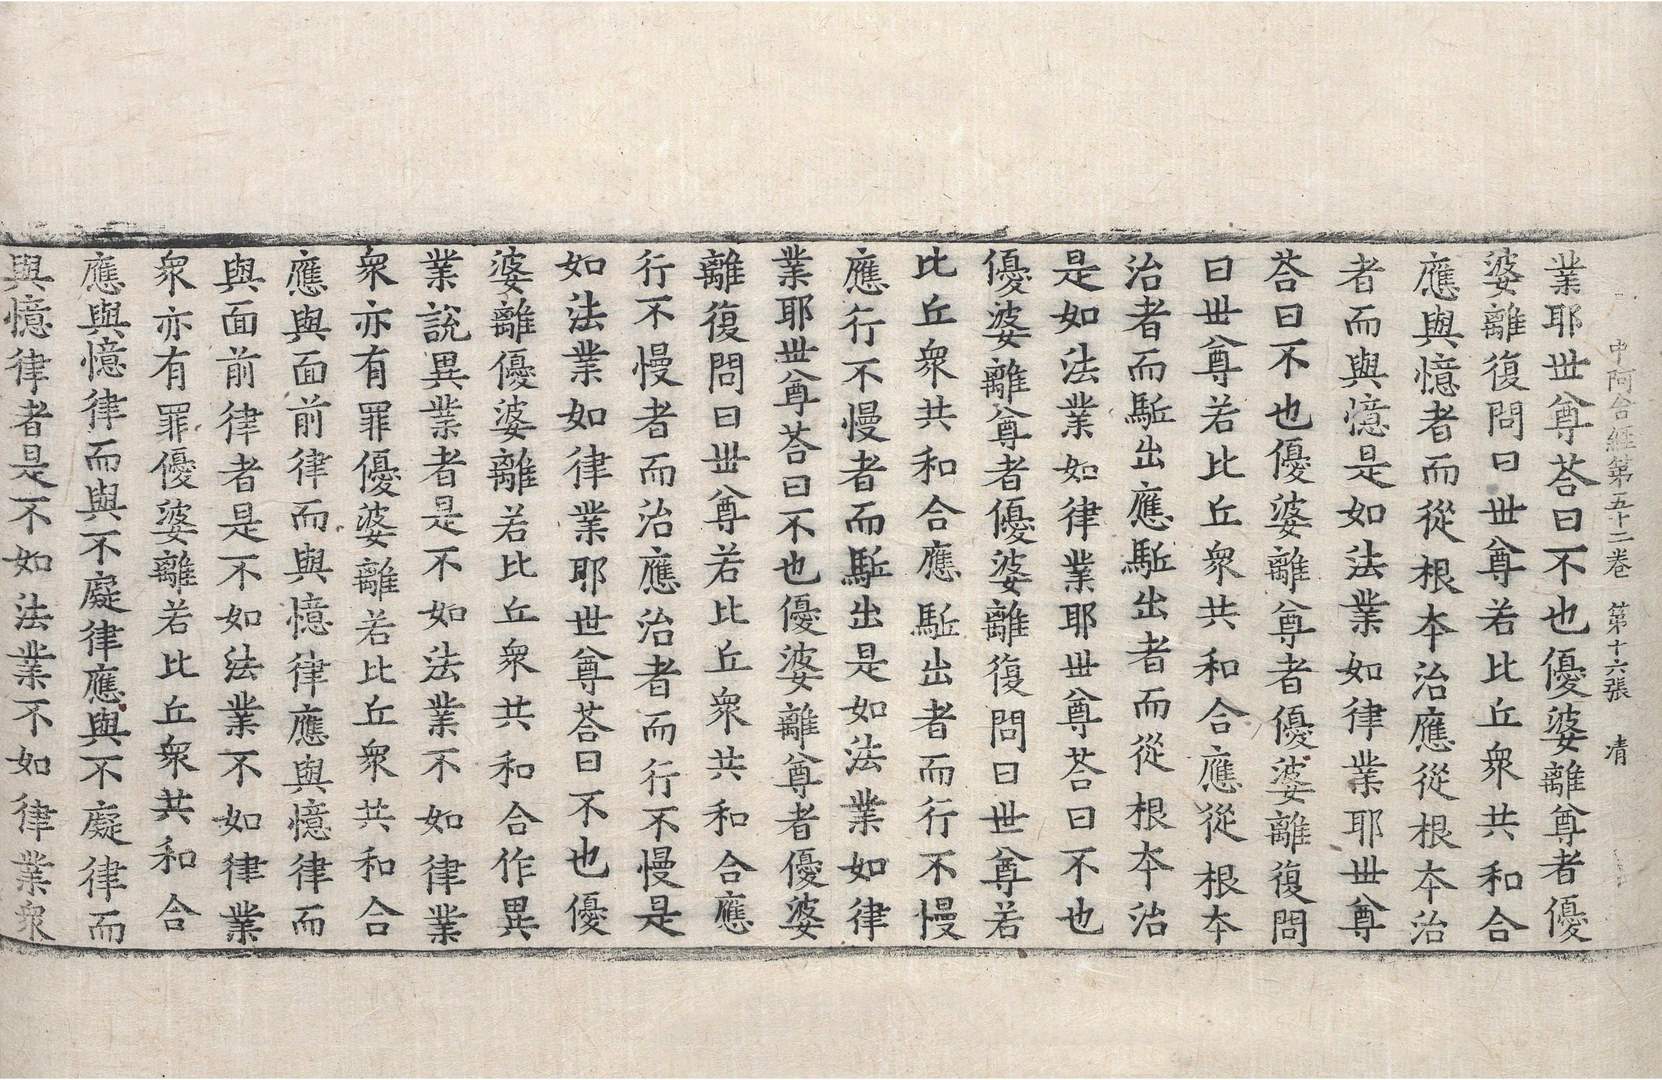 中阿含經第五十二卷 第十六張 清
業耶世尊荅曰不也優婆離尊者優
婆離復問曰世尊若比丘衆共和合
應與憶者而從根本治應從根本治
者而與憶是如法業如律業耶世尊
荅曰不也優婆離尊者優婆離復問
曰世尊若比丘衆共和合應從根本
治者而駈出應駈出者而從根本治
是如法業如律業耶世尊荅曰不也
優婆離尊者優婆離復問曰世尊若
比丘衆共和合應駈出者而行不慢
應行不慢者而駈出是如法業如律
業耶世尊荅曰不也優婆離尊者優婆
離復問曰世尊若比丘衆共和合應
行不慢者而治應治者而行不慢是
如法業如律業耶世尊荅曰不也優
婆離優婆離若比丘衆共和合作異
業說異業者是不如法業不如律業
衆亦有罪優婆離若比丘衆共和合
應與面前律而與憶律應與憶律而
與面前律者是不如法業不如律業
衆亦有罪優婆離若比丘衆共和合
應與憶律而與不癡律應與不癡律而
與憶律者是不如法業不如律業衆